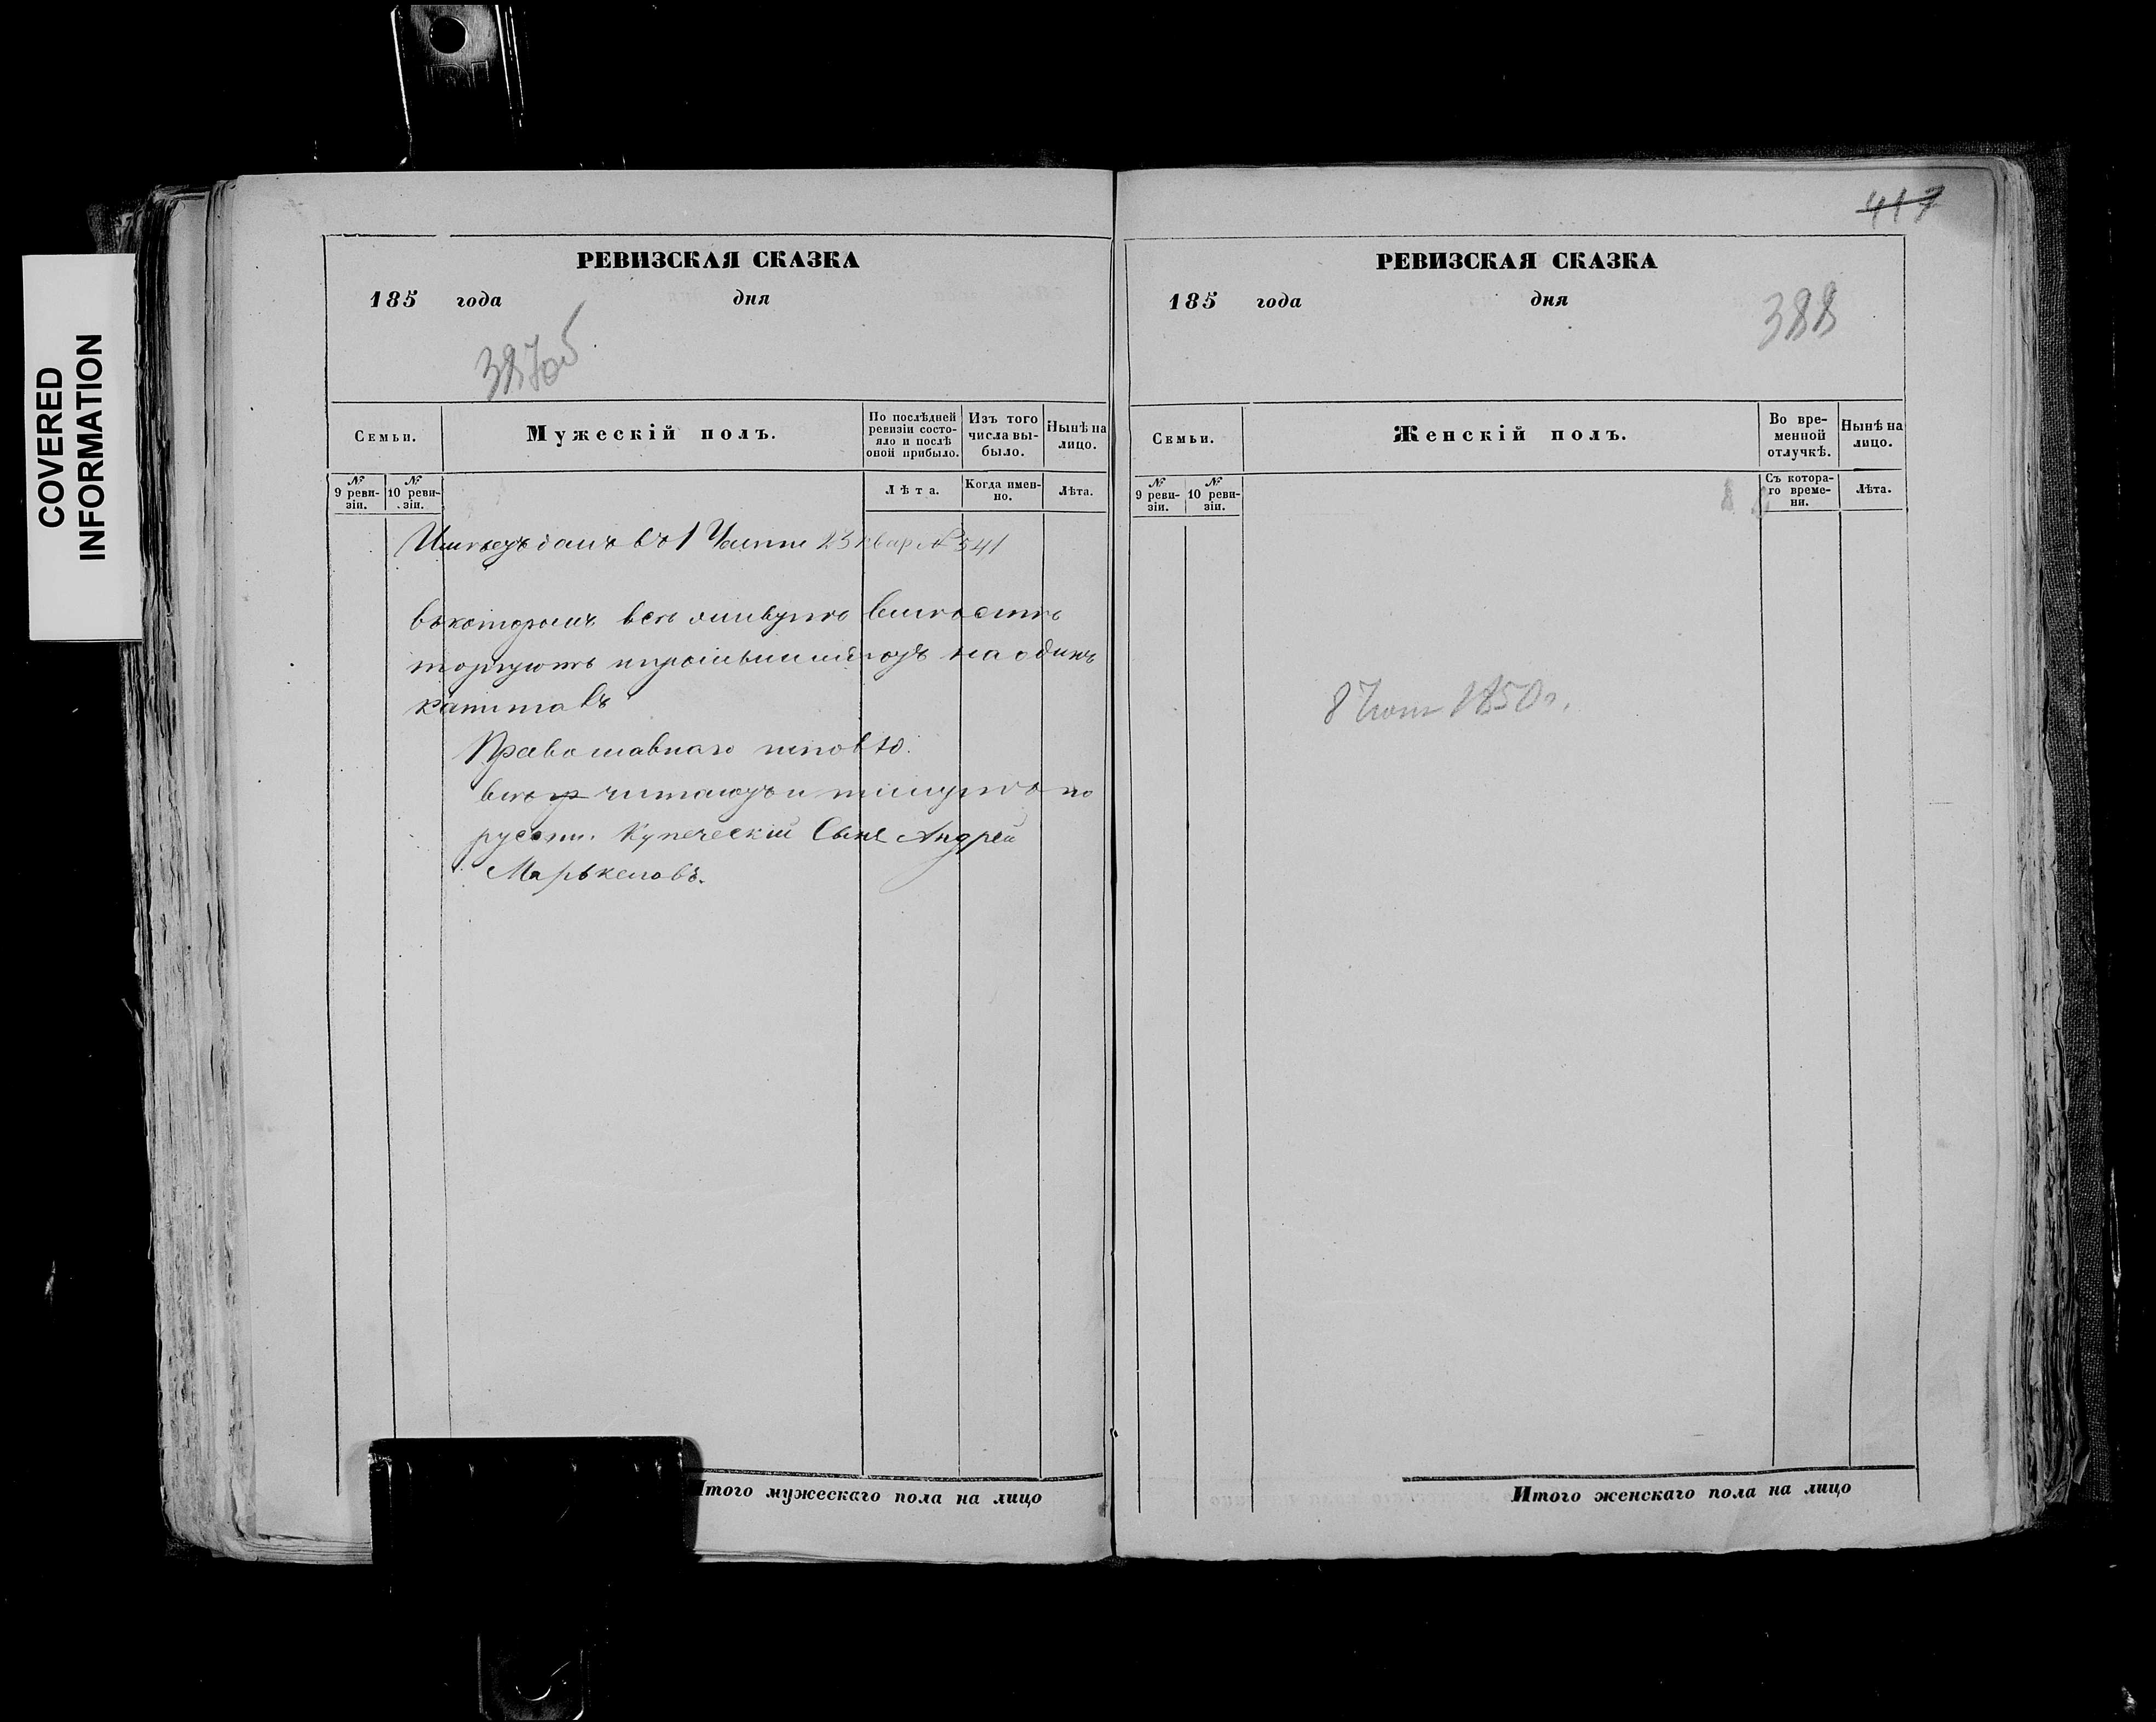 COVERED
INFORMATION
РЕВИЗСКАЯ СКАЗКА
185 года дня
387об
Семьи.
Мужескій полъ.
По послѣдней ревизіи состояло и послѣ оной прибыло.
Изъ того числа выбыло.
Нынѣ на лицо.
№ 9 ревизіи.
№ 10 ревизіи.
Лѣта.
Когда именно.
Лѣта.
домъ въ 1 Части 23 квар № 541
въкоторомъ всѣ живутъ вмѣстѣ
торгуютъ на одинъ
капиталъ
Православнаго
всѣ читаютъ и пишутъ по
руски. Купеческій Сынъ Андрей
Маръкеловъ.
Итого мужескаго пола на лицо
417
РЕВИЗСКАЯ СКАЗКА
185 года дня
388
Семьи.
Женскій полъ.
Во временной отлучкѣ.
Нынѣ на лицо.
№ 9 ревизіи.
№ 10 ревизіи.
Съ котораго времени.
Лѣта.
8 1850 г.
Итого женскаго пола на лицо